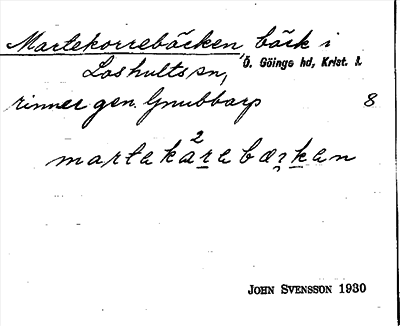 Martekorrebäcken, bäck i
Loshults sn, Ö. Göinge hd, Krist. l.
rinner gen. Gnubbarp 8
2
martakarabæckan
JOHN SVENSSON 1930